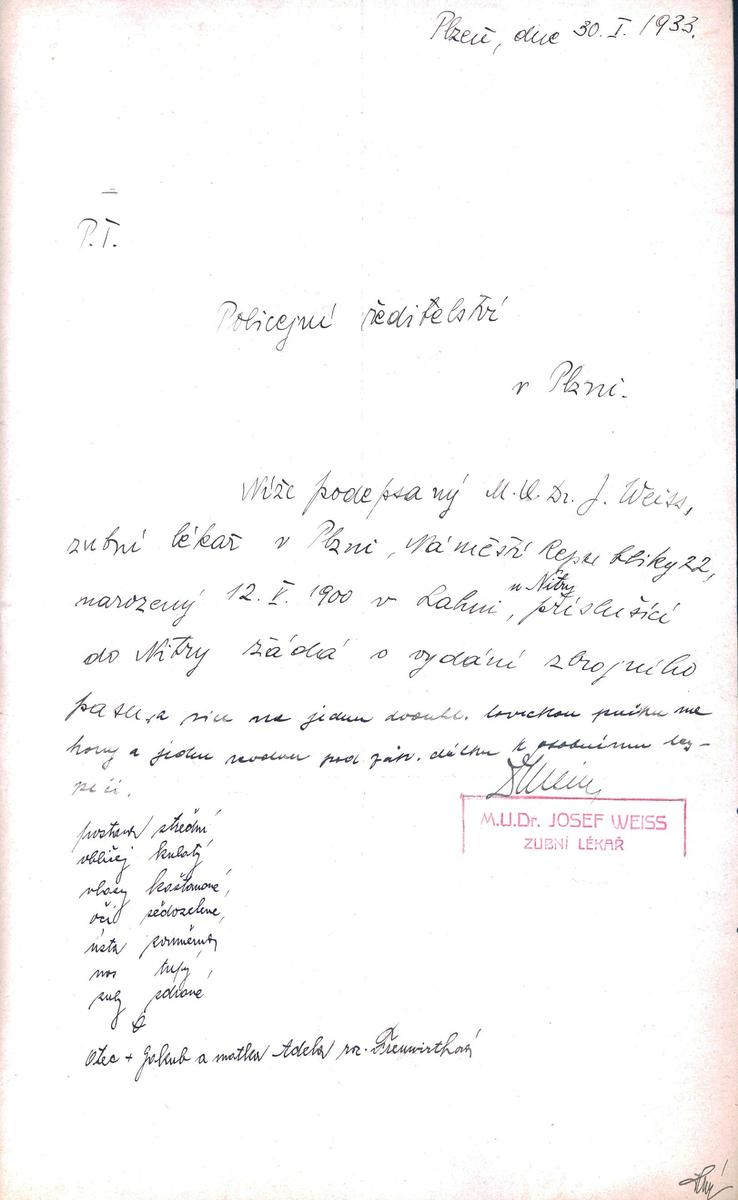 Plzeň, dne 30. I. 1933.
P.T.
Policejní ředitelství
v Plzni.
Níže podepsaný M.U.Dr. J. Weiss,
zubní lékař v Plzni, Náměstí Republiky 22,
u Nitry
narozený 12. V. 1900 v , příslušící
do Nitry žádá o vydání zbrojního
pasu, a sice na jednu dvouhl. loveckou pušku na
hony a jeden pod zák. délku k osobnímu bez-
pečí.
M.U.Dr. JOSEF WEISS
ZUBNÍ LÉKAŘ
postava střední
obličej kulatý
vlasy kaštanové,
oči šedozelené,
ústa souměrná
nos tupý
zuby zdravé
Otec + Jakub a matka Adela roz.